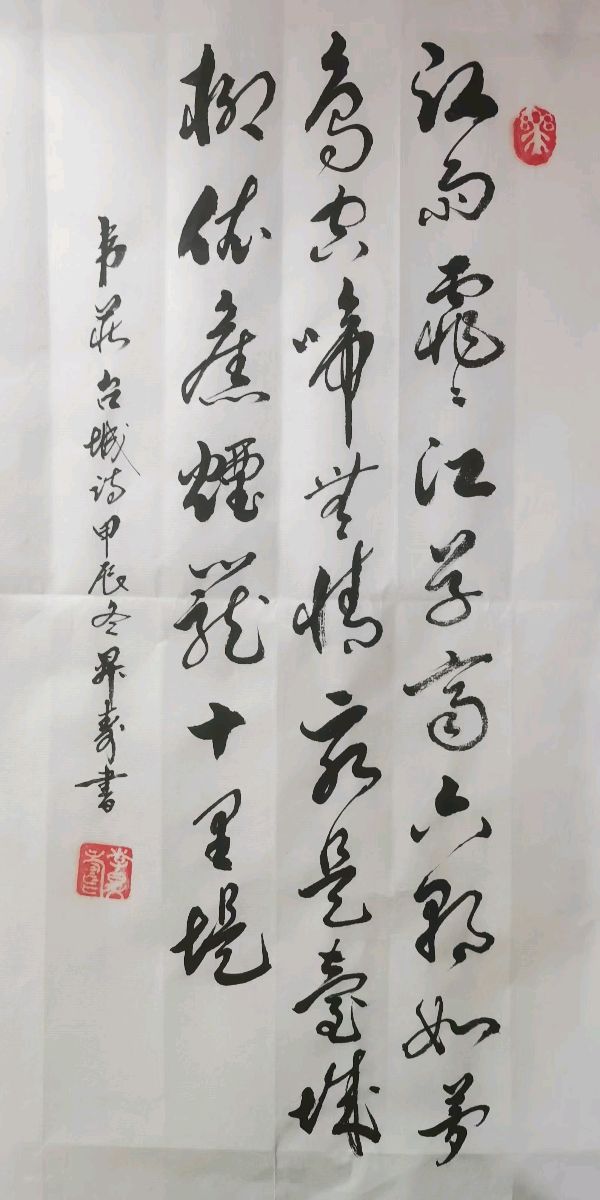 江雨霏々江草齊六朝如夢
鳥空啼無情最是臺城
柳依舊煙籠十里堤
韦莊台城诗甲辰冬昇寿書